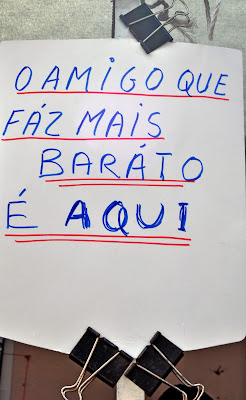 O AMIGO QUE
FÁZ MAIS
BARÁTO
É AQUI